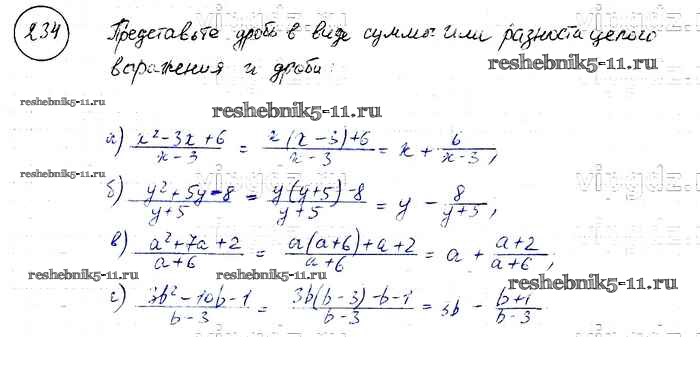 234 Представьте дробь в виде суммы или разности целого
выражения и дроби:
reshebnik5-11.ru
reshebnik5-11.ru
а) (x² - 3x + 6)/(x - 3) = (x(x - 3) + 6)/(x - 3) = x + 6/(x - 3),
б) (y² + 5y - 8)/(y + 5) = (y(y + 5) - 8)/(y + 5) = y - 8/(y + 5),
reshebnik5-11.ru
в) (a² + 7a + 2)/(a + 6) = (a(a + 6) + a + 2)/(a + 6) = a + (a + 2)/(a + 6),
reshebnik5-11.ru reshebnik5-11.ru reshebnik5-11.ru
г) (3b² - 10b - 1)/(b - 3) = (3b(b - 3) - b - 1)/(b - 3) = 3b - (b + 1)/(b - 3)